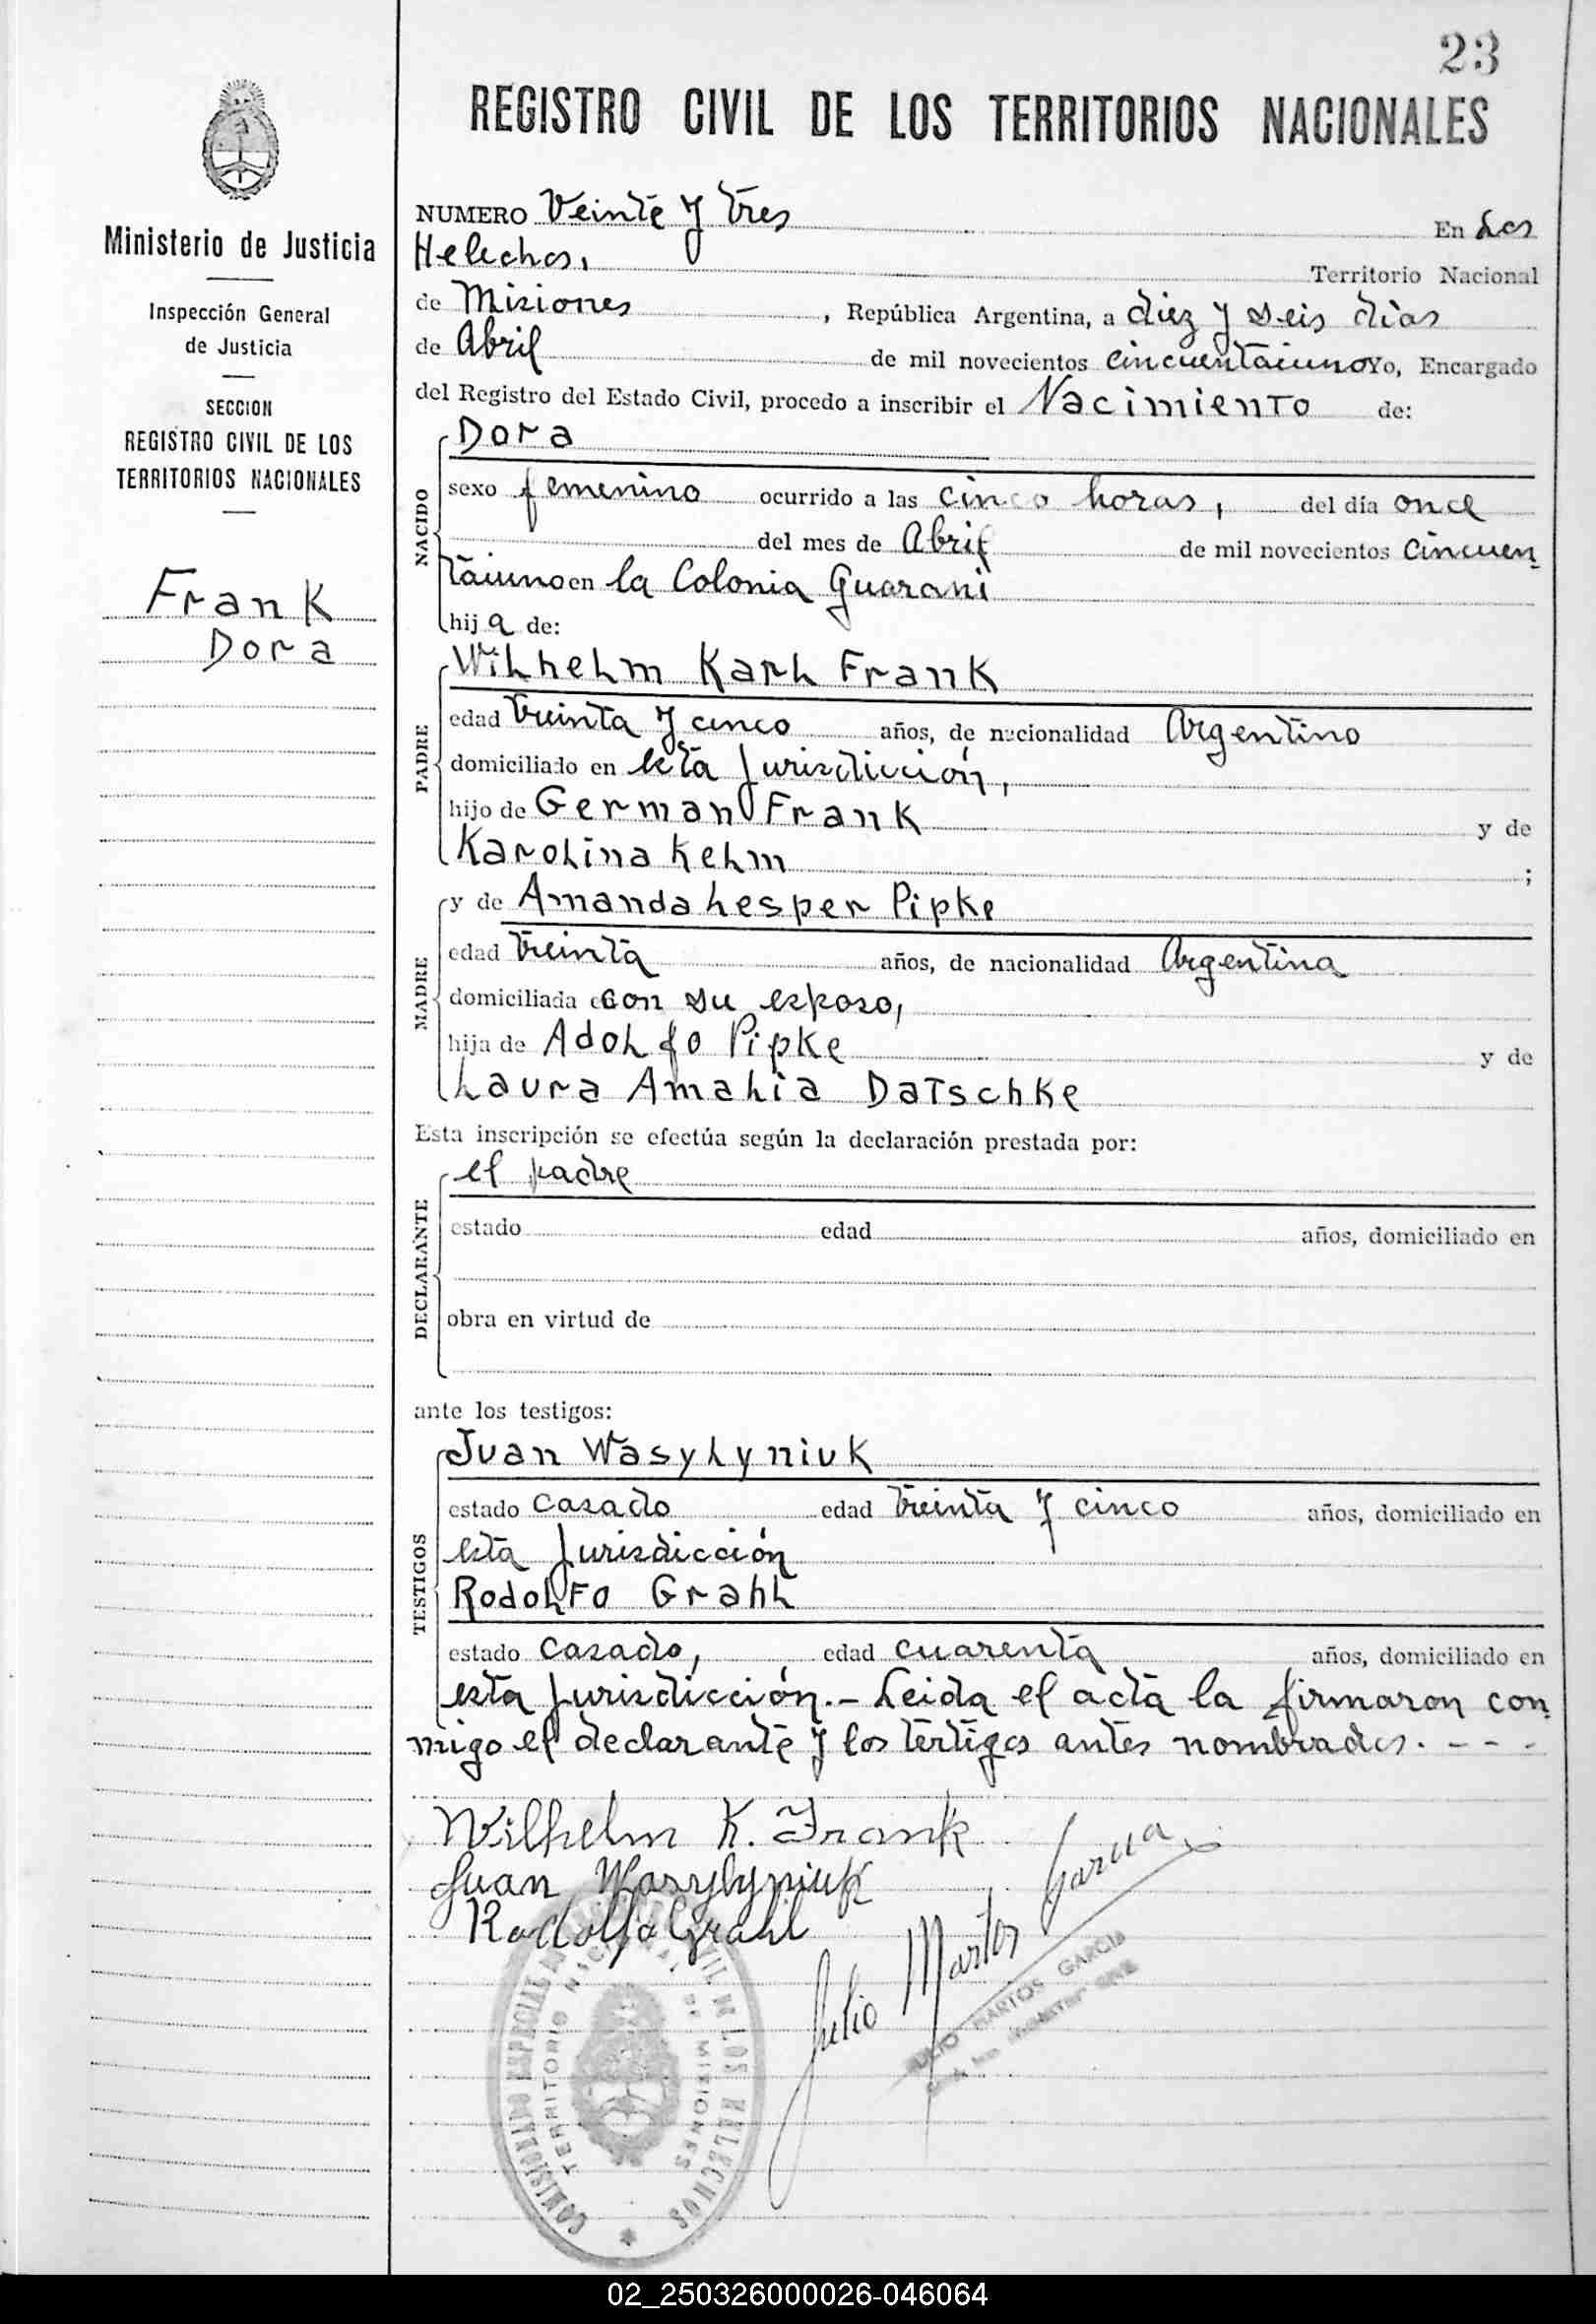 23
REGISTRO CIVIL DE LOS TERRITORIOS NACIONALES
Ministerio de Justicia
Inspección General
de Justicia
SECCION
REGISTRO CIVIL DE LOS
TERRITORIOS NACIONALES
Frank
Dora
NUMERO Veinte y tres En Los
Helechos, Territorio Nacional
de Misiones, República Argentina, a diez y seis días
de Abril de mil novecientos cincuentaiuno Yo, Encargado
del Registro del Estado Civil, procedo a inscribir el Nacimiento de:
NACIDO
Dora
sexo femenino ocurrido a las cinco horas, del día once
del mes de Abril de mil novecientos cincuen
taiuno en la Colonia Guarani
hija de:
PADRE
Wilhelm Karl Frank
edad treinta y cinco años, de nacionalidad Argentino
domiciliado en esta Jurisdicción,
hijo de German Frank y de
Karolina Kelm ;
MADRE
y de Amanda Lesper Pipke
edad treinta años, de nacionalidad Argentina
domiciliada con su esposo,
hija de Adolfo Pipke y de
Laura Amalia Datschke
Esta inscripción se efectúa según la declaración prestada por:
DECLARANTE
el padre
estado edad años, domiciliado en
obra en virtud de
ante los testigos:
TESTIGOS
Juan Wasylyniuk
estado casado edad treinta y cinco años, domiciliado en
esta Jurisdicción
Rodolfo Grahl
estado casado, edad cuarenta años, domiciliado en
esta Jurisdicción.- Leida el acta la firmaron con
migo el declarante y los testigos antes nombrados. - - -
Wilhelm K. Frank
Juan Wasylyniuk
Rodolfo Grahl
Julio Martos Garcia
JULIO MARTOS GARCIA
TERRITORIO NACIONAL DE MISIONES
02_250326000026-046064